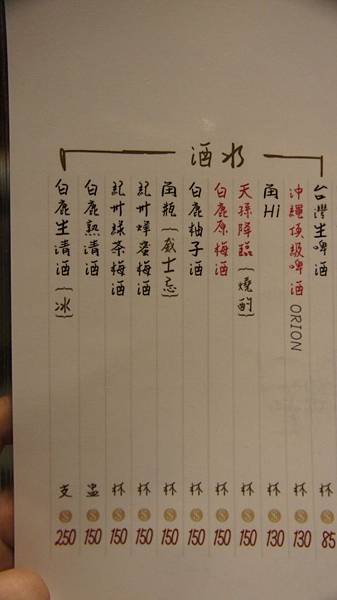 酒水
台灣生啤酒 杯 85
沖繩頂級啤酒 ORION 杯 130
角Hi 杯 130
天孫降臨(燒酌) 杯 150
白鹿原梅酒 杯 150
白鹿柚子酒 杯 150
角瓶(威士忌) 杯 150
紀州蜂蜜梅酒 杯 150
紀州綠茶梅酒 杯 150
白鹿熱清酒 盅 150
白鹿生清酒(冰) 支 250